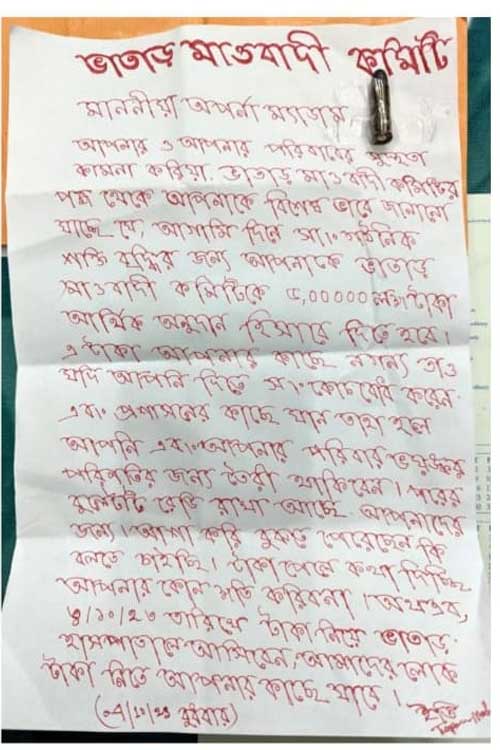 ভাতাড় মাওবাদী কমিটি
মাননীয়া অপর্না ম্যাডাম
আপনার ও আপনার পরিবারের সুস্থতা
কামনা করিয়া. ভাতাড় মাওবাদী কমিটির
পক্ষ থেকে আপনাকে বিশেষ ভাবে জানানো
যাচ্ছে যে, আগামি দিনে সাংগঠনিক
শক্তি বৃদ্ধির জন্য আপনাকে ভাতাড়
মাওবাদী কমিটিকে ৫,০০০০০ লক্ষ টাকা
আর্থিক অনুদান হিসাবে দিতে হবে।
এ টাকা আপনার কাছে নগন্য তাও
যদি আপনি দিতে সংকোচবোধ করেন.
এবং প্রশাসনের কাছে যান তাহা হলে
আপনি এবং আপনার পরিবার ভয়ঙ্কর
পরিণতির জন্য তৈরী থাকিবেন। পরের
বুলেটটি রেডি রাখা আছে. আপনাদের
জন্য। আশা করি বুঝতে পেরেছেন কি
বলতে চাইছি। টাকা পেলে কথা দিচ্ছি
আপনার কোন ক্ষতি করিবনা। অতএব,
তারিখে টাকা নিয়ে ভাতাড়.
হাসপাতালে আসিবেন, আমাদের লোক
টাকা নিতে আপনার কাছে যাবে।
বুধবার) ইতি